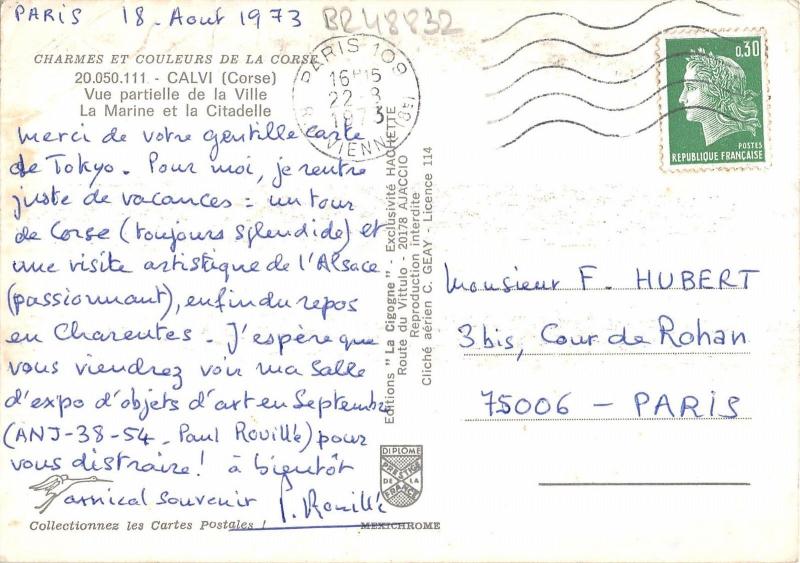 PARIS 18. Aout 1973
BR48832
CHARMES ET COULEURS DE LA CORSE
20.050.111 - CALVI (Corse)
Vue partielle de la Ville
La Marine et la Citadelle
merci de votre gentille carte
de Tokyo. Pour moi, je rentre
juste de vacances : un tour
de Corse (toujours splendide) et
une visite artistique de l'Alsace
(passionnant), enfin du repos
en Charentes. J'espère que
vous viendrez voir ma Salle
d'expo d'objets d'art en Septembre
(ANJ-38-54. Paul Rouillé) pour
vous distraire! à bientôt
amical souvenir P. Rouillé
Collectionnez les Cartes Postales !
MEXICHROME
Editions "La Cigogne" - Exclusivité HACHETTE
Route du Vittulo - 20178 AJACCIO
Reproduction interdite
Cliché aérien C. GEAY - Licence 114
DIPLÔME
PRESTIGE
DE LA
FRANCE
PARIS 109
16H15
22-8
1973
VIENNE (8e)
0,30
POSTES
REPUBLIQUE FRANÇAISE
Monsieur F. HUBERT
3 bis, Cour de Rohan
75006 - PARIS